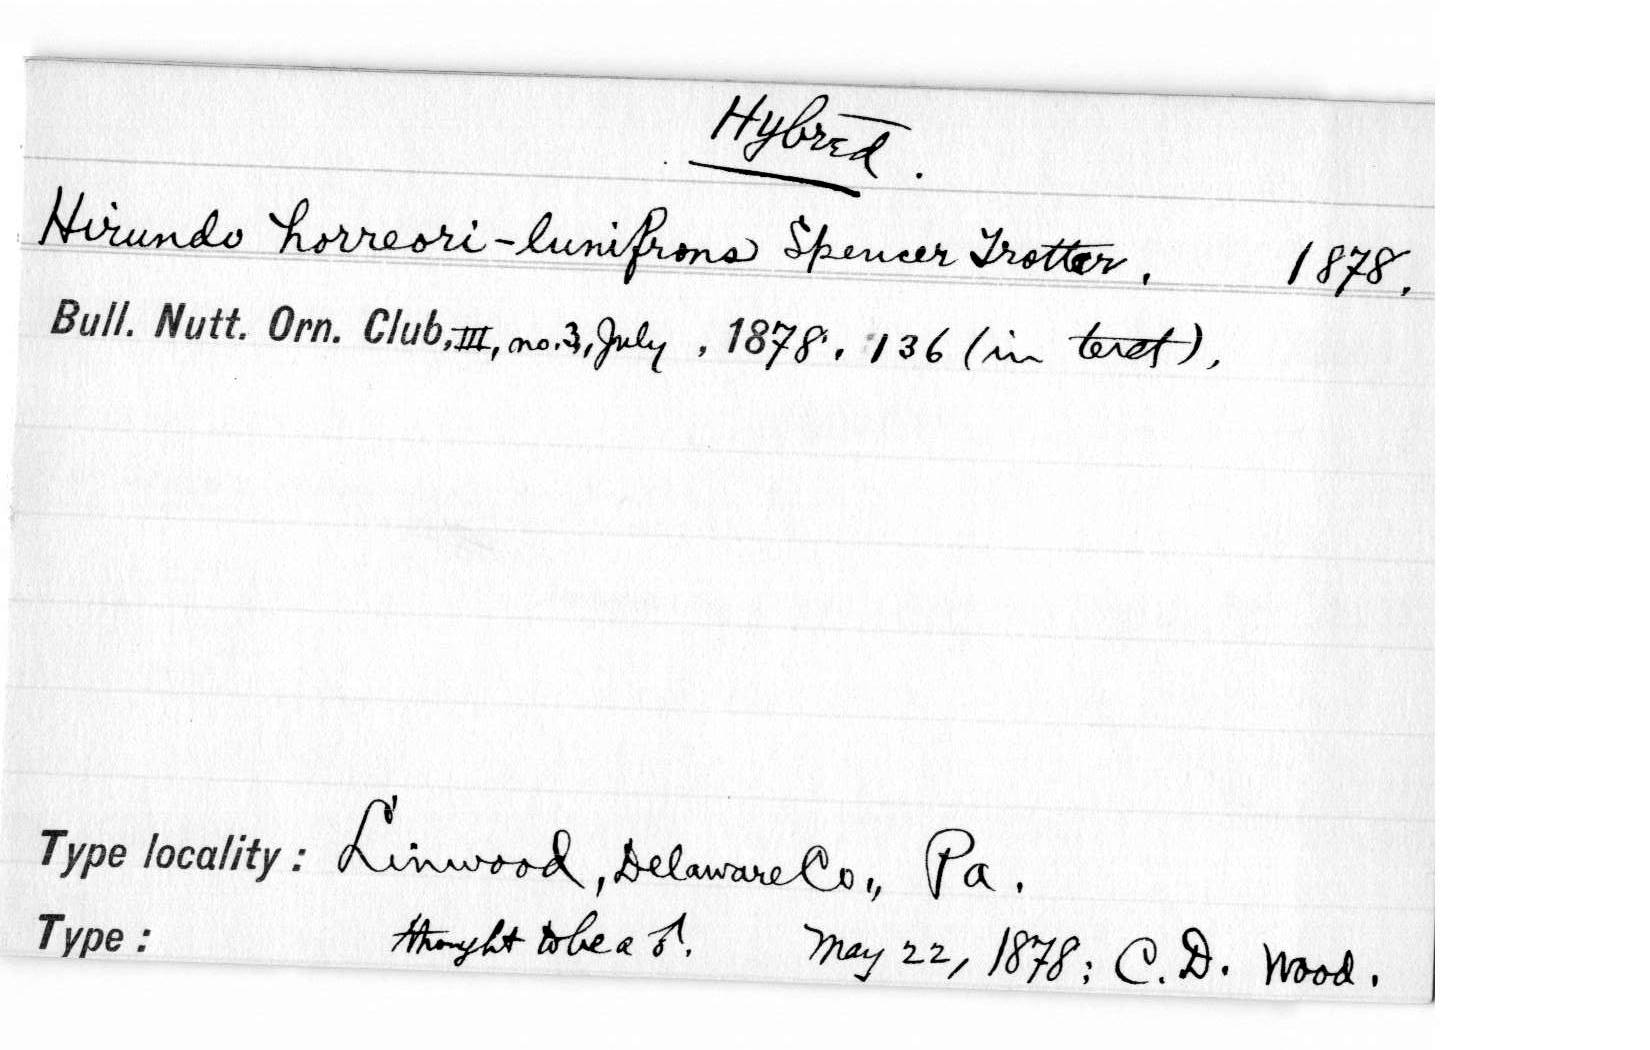 Hybrid.
Hirundo horreori-lunifrons Spencer Trotter. 1878.
Bull. Nutt. Orn. Club, III, no. 3, July, 1878. 136 (in text),
Type locality: Linwood, Delaware Co., Pa.
Type: thought to be a ♂. May 22, 1878; C. D. Wood.